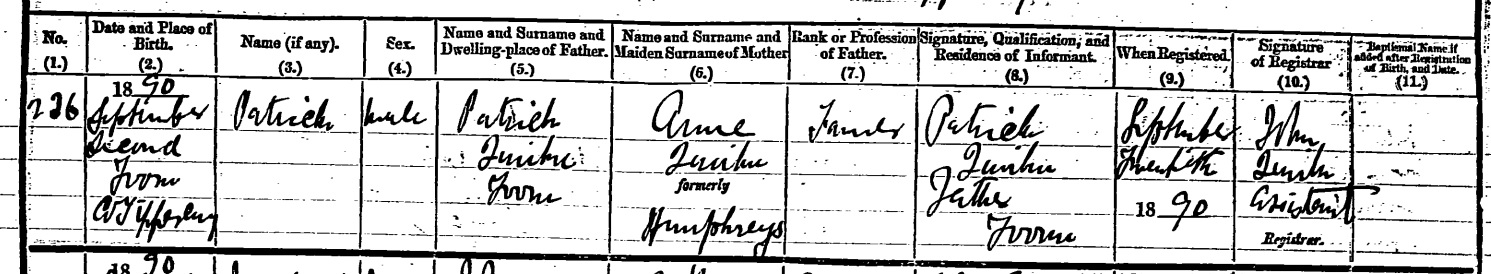 No. (1.)
Date and Place of Birth. (2.)
Name (if any). (3.)
Sex. (4.)
Name and Surname and Dwelling-place of Father. (5.)
Name and Surname and Maiden Surname of Mother (6.)
Rank or Profession of Father. (7.)
Signature, Qualification, and Residence of Informant. (8.)
When Registered. (9.)
Signature of Registrar (10.)
Baptismal Name if added after Registration of Birth, and Date. (11.)
236
1890
September
Second
Co Tipperary
Patrick
Male
Patrick
Anne
formerly
Humphreys
Farmer
Patrick
Father
September
Twentieth
1890
John
Assistant
Registrar.
1890